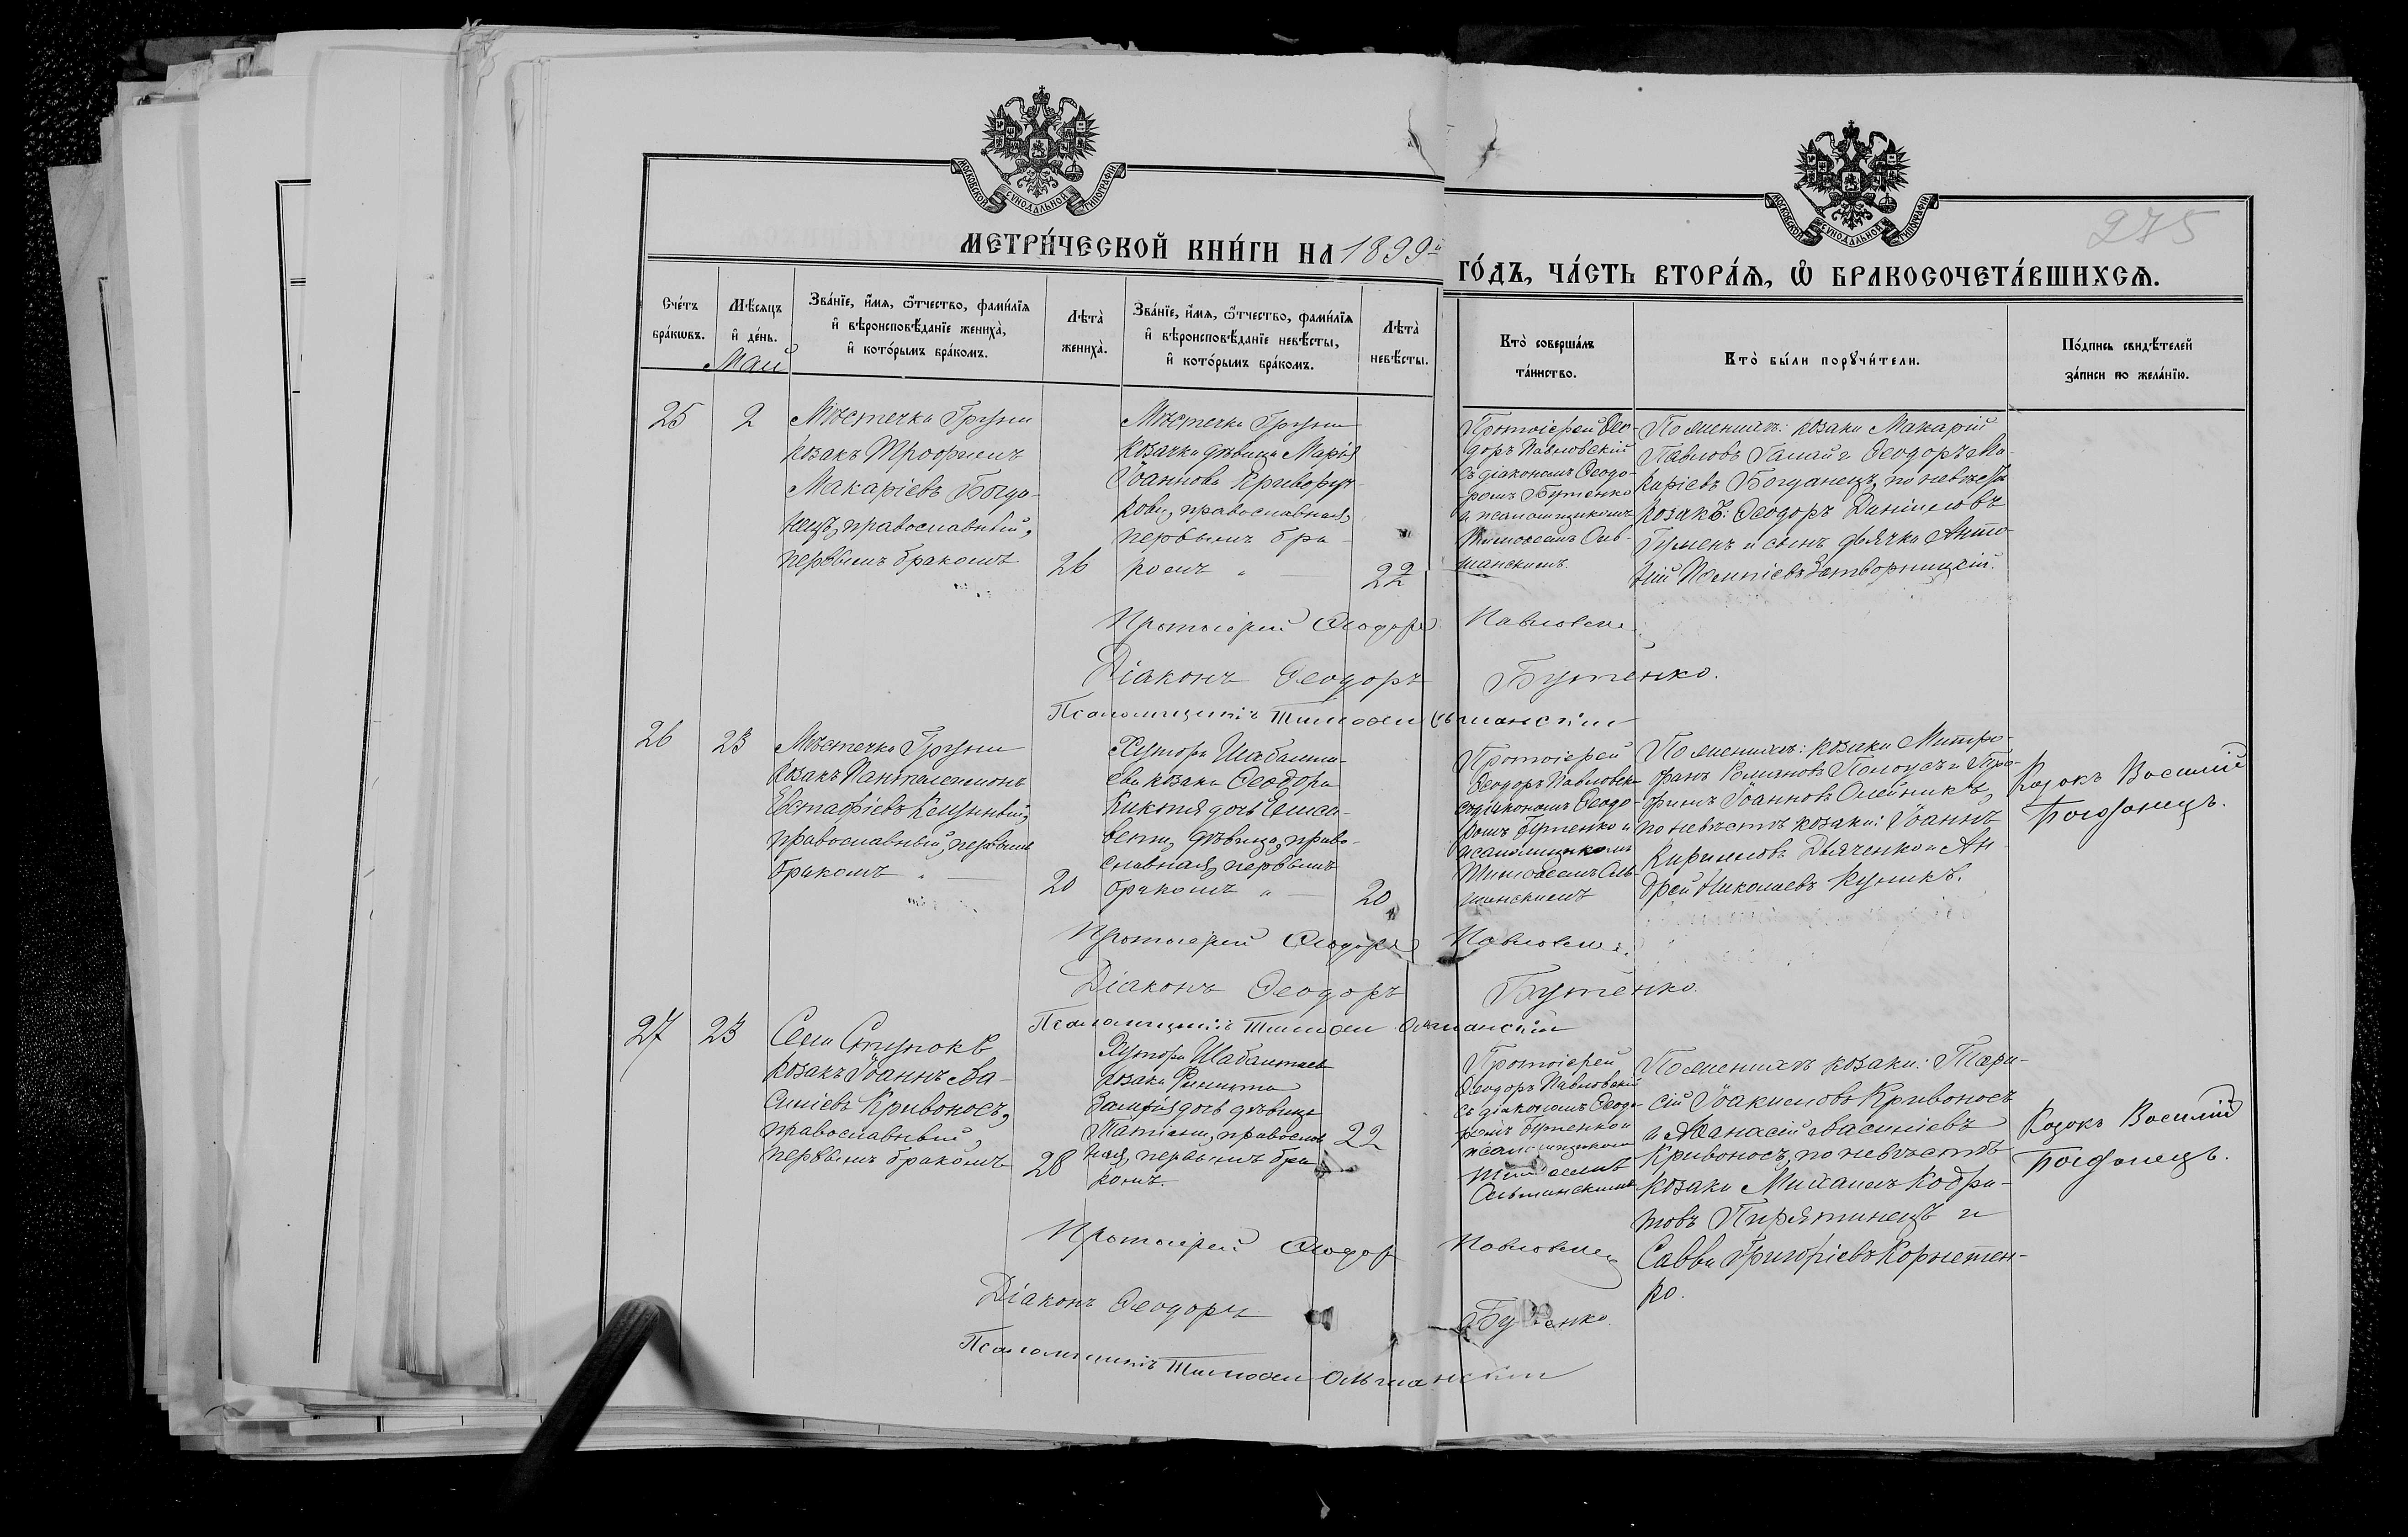 МОСКОВСКОЙ СѴНОДАЛЬНОЙ ТИПОГРАФІИ
МОСКОВСКОЙ СѴНОДАЛЬНОЙ ТИПОГРАФІИ
275
МЕТРИ́ЧЕСКОЙ КНИ́ГИ НА 1899й
ГО́ДЪ, ЧА́СТЬ ВТОРА́Я, Ѡ҆ БРАКОСОЧЕТА́ВШИХСЯ.
Сче́тъ
бра́кѡвъ.
Мѣ́сяцъ
и҆ де́нь.
Май
Зва́нїе, и҆́мя, ѻ҆́тчество, фами́лїя
и҆ вѣроисповѣ́данїе жениха̀,
и҆ кото́рымъ бра́комъ.
Лѣта̀
жениха̀.
Зва́нїе, и҆́мя, ѻ҆́тчество, фами́лїя
и҆ вѣроисповѣ́данїе невѣ́сты,
и҆ кото́рымъ бра́комъ.
Лѣта̀
невѣ́сты.
Кто̀ соверша́лъ
та́инство.
Кто̀ бы́ли порꙋчи́тели.
По́дпись свидѣ́телей
за́писи по жела́нїю.
25
2
Мѣстечка Груни
козакъ Трофимъ
Макаріевъ Богда-
нецъ, православный,
первымъ бракомъ
26
Мѣстечка Груни
козачка дѣвица Марія
Іоаннова Криворуч-
кова, православная,
первымъ бра-
комъ
22
Протоіерей Ѳео-
доръ Павловскій
съ діакономъ Ѳеодо-
ромъ Бутенко
и псаломщикомъ
Тимоѳеемъ Оль-
шанскимъ.
По женихѣ: козаки Макарій
Павловъ Галай и Ѳеодоръ Ма-
каріевъ Богданецъ, по невѣстѣ
козакъ: Ѳеодоръ Даніиловъ
и сынъ дьячка Анто-
ній
Протоіерей Ѳеодоръ Павловскі
Діаконъ Ѳеодоръ Бутенко.
Псаломщикъ Тимоѳей Ольшанскій
26
23
Мѣстечка Груни
козакъ Пантелеимонъ
Евстафіевъ
православный, первымъ
бракомъ
20
Хутора Шабалта-
ева козака Ѳеодора
Кикотя дочь Елиса-
вета, дѣвица, право-
славная, первымъ
бракомъ
20
Протоіерей
Ѳеодоръ Павловскі
съ діакономъ Ѳеодо-
ромъ Бутенко и
псаломщикомъ
Тимоѳеемъ Оль-
шанскимъ
По женихѣ: козаки Митро-
фанъ Романовъ и Тро-
фимъ Іоанновъ Олейникъ,
по невѣстѣ козаки: Іоаннъ
Кирилловъ Дьяченко и Ан-
дрей Николаевъ Куликъ.
Козакъ Василій
Богданецъ.
Протоіерей Ѳеодоръ Павловскі
Діаконъ Ѳеодоръ Бутенко.
Псаломщикъ Тимоѳей Ольшанскій
27
23
Села Ступокъ
козакъ Іоаннъ Ва-
силіевъ Кривоносъ,
православный,
первымъ бракомъ
28
Хутора Шабалтаев
козака Филиппа
дочь дѣвица
Татіана, православ
ная, первымъ бра
комъ.
22
Протоіерей
Ѳеодоръ Павловскій
съ діакономъ Ѳеодо-
ромъ Бутенко и
псаломщикомъ
Тимоѳеемъ
Ольшанскимъ
По женихѣ козаки: Тара-
сій Іоакимовъ Кривоносъ
и Аѳанасій Василіевъ
Кривоносъ, по невѣстѣ
козаки Михаилъ Кодра-
товъ Пирятинецъ и
Савва Григоріевъ Корнетен-
ко.
Козакъ Василій
Богданецъ.
Протоіерей Ѳеодор Павловскі
Діаконъ Ѳеодоръ Бутенко.
Псаломщикъ Тимоѳей Ольшанскій